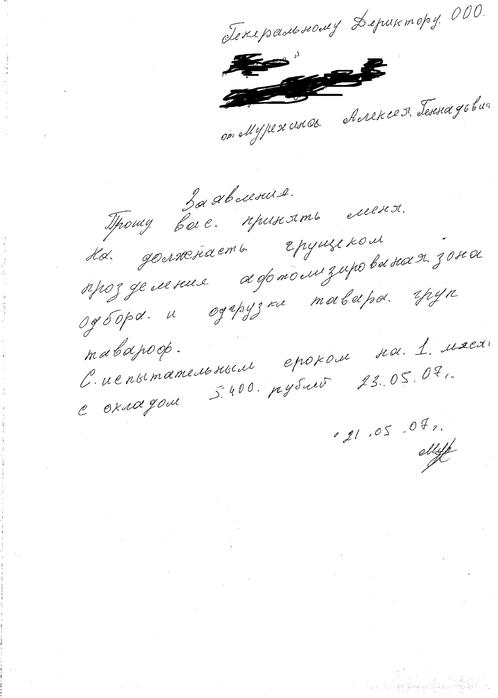 Генеральному Дериктору. ООО.
от Мурехина Алексея. Геннадьви
Заавления.
Прошу вас. принять меня.
На. должнасть грущеком
прозделения афтолизированая зона
одбора. и одгрузки тавара. груп
тавароф.
С. испытательным сроком на. 1. мясяц
с окладом 5.400. рублей 23.05.07г.
21.05.07г.